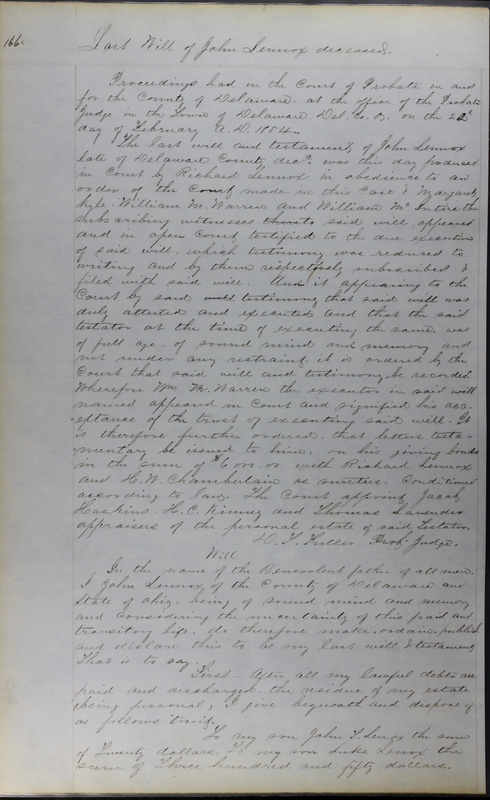 166.
Last Will of John Lennox deceased.
Proceedings had in the Court of Probate in and
for the County of Delaware. at the office of the Probate
Judge in the Town of Delaware Del. Co. O. on the 22d
day of February A. D. 1854.
The last will and testament, of John Lennox
late of Delaware County decd. was this day produced
in Court by Richard Lennox in obedience to an
order of the Court made in this Case & Margaret
Kyle. William M. Warren and William Mc Intire the
subscribing witnesses thereto said will appeared
and in open Court testified to the due execution
of said will. which testimony was reduced to
writing and by them respectively subscribed &
filed with said will. And it appearing to the
Court by said testimony that said will was
duly attested and executed and that the said
testator at the time of executing the same. was
of full age. of sound mind and memory and
not under any restraint. it is ordered by the
Court that said will and testimony be recorded
Wherefore Wm M. Warren the executor in said will
named appeared in Court and signified his acc-
eptance of the trust of executing said will. It
is therefore further ordered. that letters testa-
mentary be issued to him. on his giving bonds
in the sum of $600.00 with Richard Lennox
and H. W. Chamberlain as sureties. Conditioned
according to law. The Court appoint Jacob
Haskins. H. C. Vinney and Thomas Lavender
appraisers of the personal estate of said Testator.
D. T. Fuller Prob. Judge.
Will
In the name of the Benevolent father of all men.
I John Lennox of the County of Delaware and
State of Ohio. being of sound mind and memory
and considering the uncertainty of this frail and
transitory life. do therefore make. ordain. publish
and declare this to be my last will & testament
That is to say.
First - After all my lawful debts are
paid and discharged. the residue of my estate
(being personal) I give bequeath and dispose of
as follows towit.
To my son John T. Lenox the sum
of Twenty dollars. To my son Luke Lenox the
sum of Three hundred and fifty dollars.